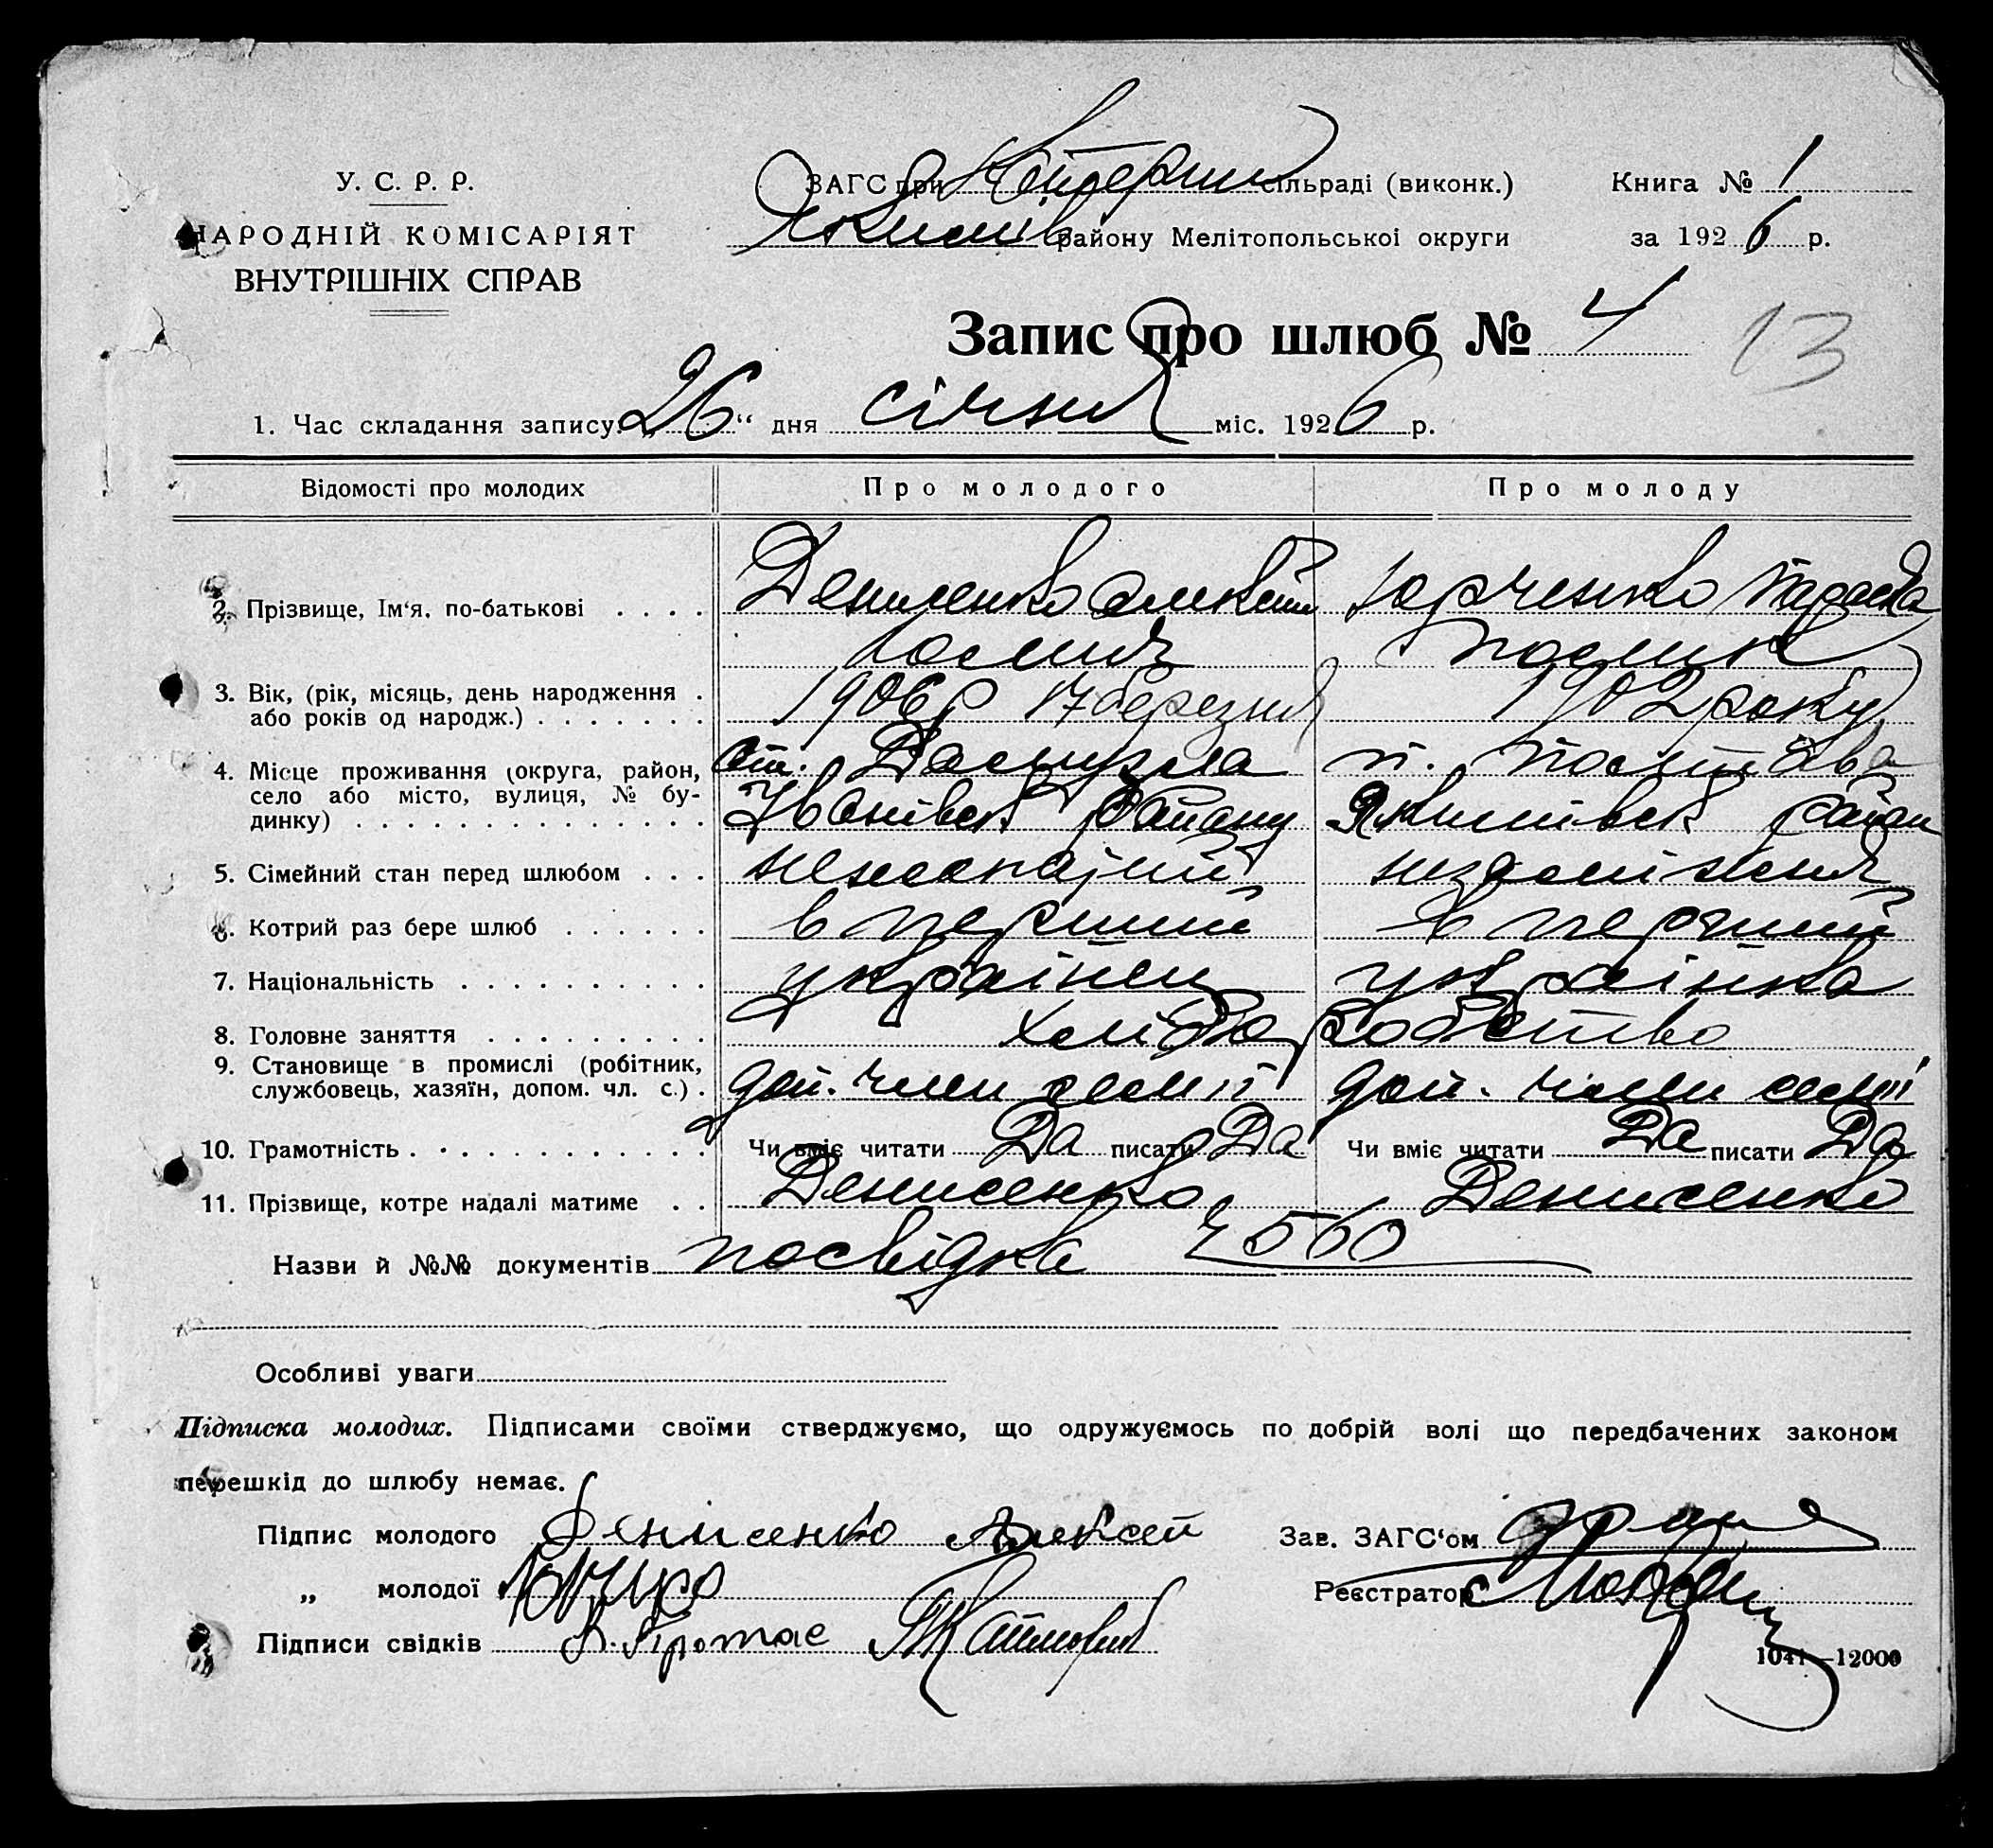 У. С. Р. Р.
НАРОДНІЙ КОМІСАРІЯТ
ВНУТРІШНІХ СПРАВ
ЗАГС при Катерин сільраді (виконк.)
Якимів району Мелітопольської округи
Книга № 1
за 1926 р.
Запис про шлюб № 4
13
1. Час складання запису: „26“ дня січня міс. 1926 р.
Відомості про молодих Про молодого Про молоду
2. Прізвище, Ім'я, по-батькові . . . . Денисенко Юрченко
3. Вік, (рік, місяць, день народження . 1906 р 17 березня 1902 року
або років од народж.) . . . . . . .
4. Місце проживання (округа, район,
село або місто, вулиця, № бу-
динку) . . . . . . . . . . . . . . Іванівск району Якимівск район
5. Сімейний стан перед шлюбом . . . нежонатий незаміжня
6. Котрий раз бере шлюб . . . . . . в перший в перший
7. Національність . . . . . . . . . . українец українка
8. Головне заняття . . . . . . . . . хліборобство
9. Становище в промислі (робітник,
службовець, хазяїн, допом. чл. с.) . доп. член семії доп. член семії
10. Грамотність . . . . . . . . . . . . Чи вміє читати Да писати Да Чи вміє читати Да писати Да
11. Прізвище, котре надалі матиме . . Денисенко Денисенко
Назви й №№ документів посвідка ч 560
Особливі уваги
Підписка молодих. Підписами своїми стверджуємо, що одружуємось по добрій волі що передбачених законом
перешкід до шлюбу немає.
Підпис молодого Денисенко Алексей Зав. ЗАГС'ом
„ молодої Реєстратор
Підписи свідків Протас
1041—12000